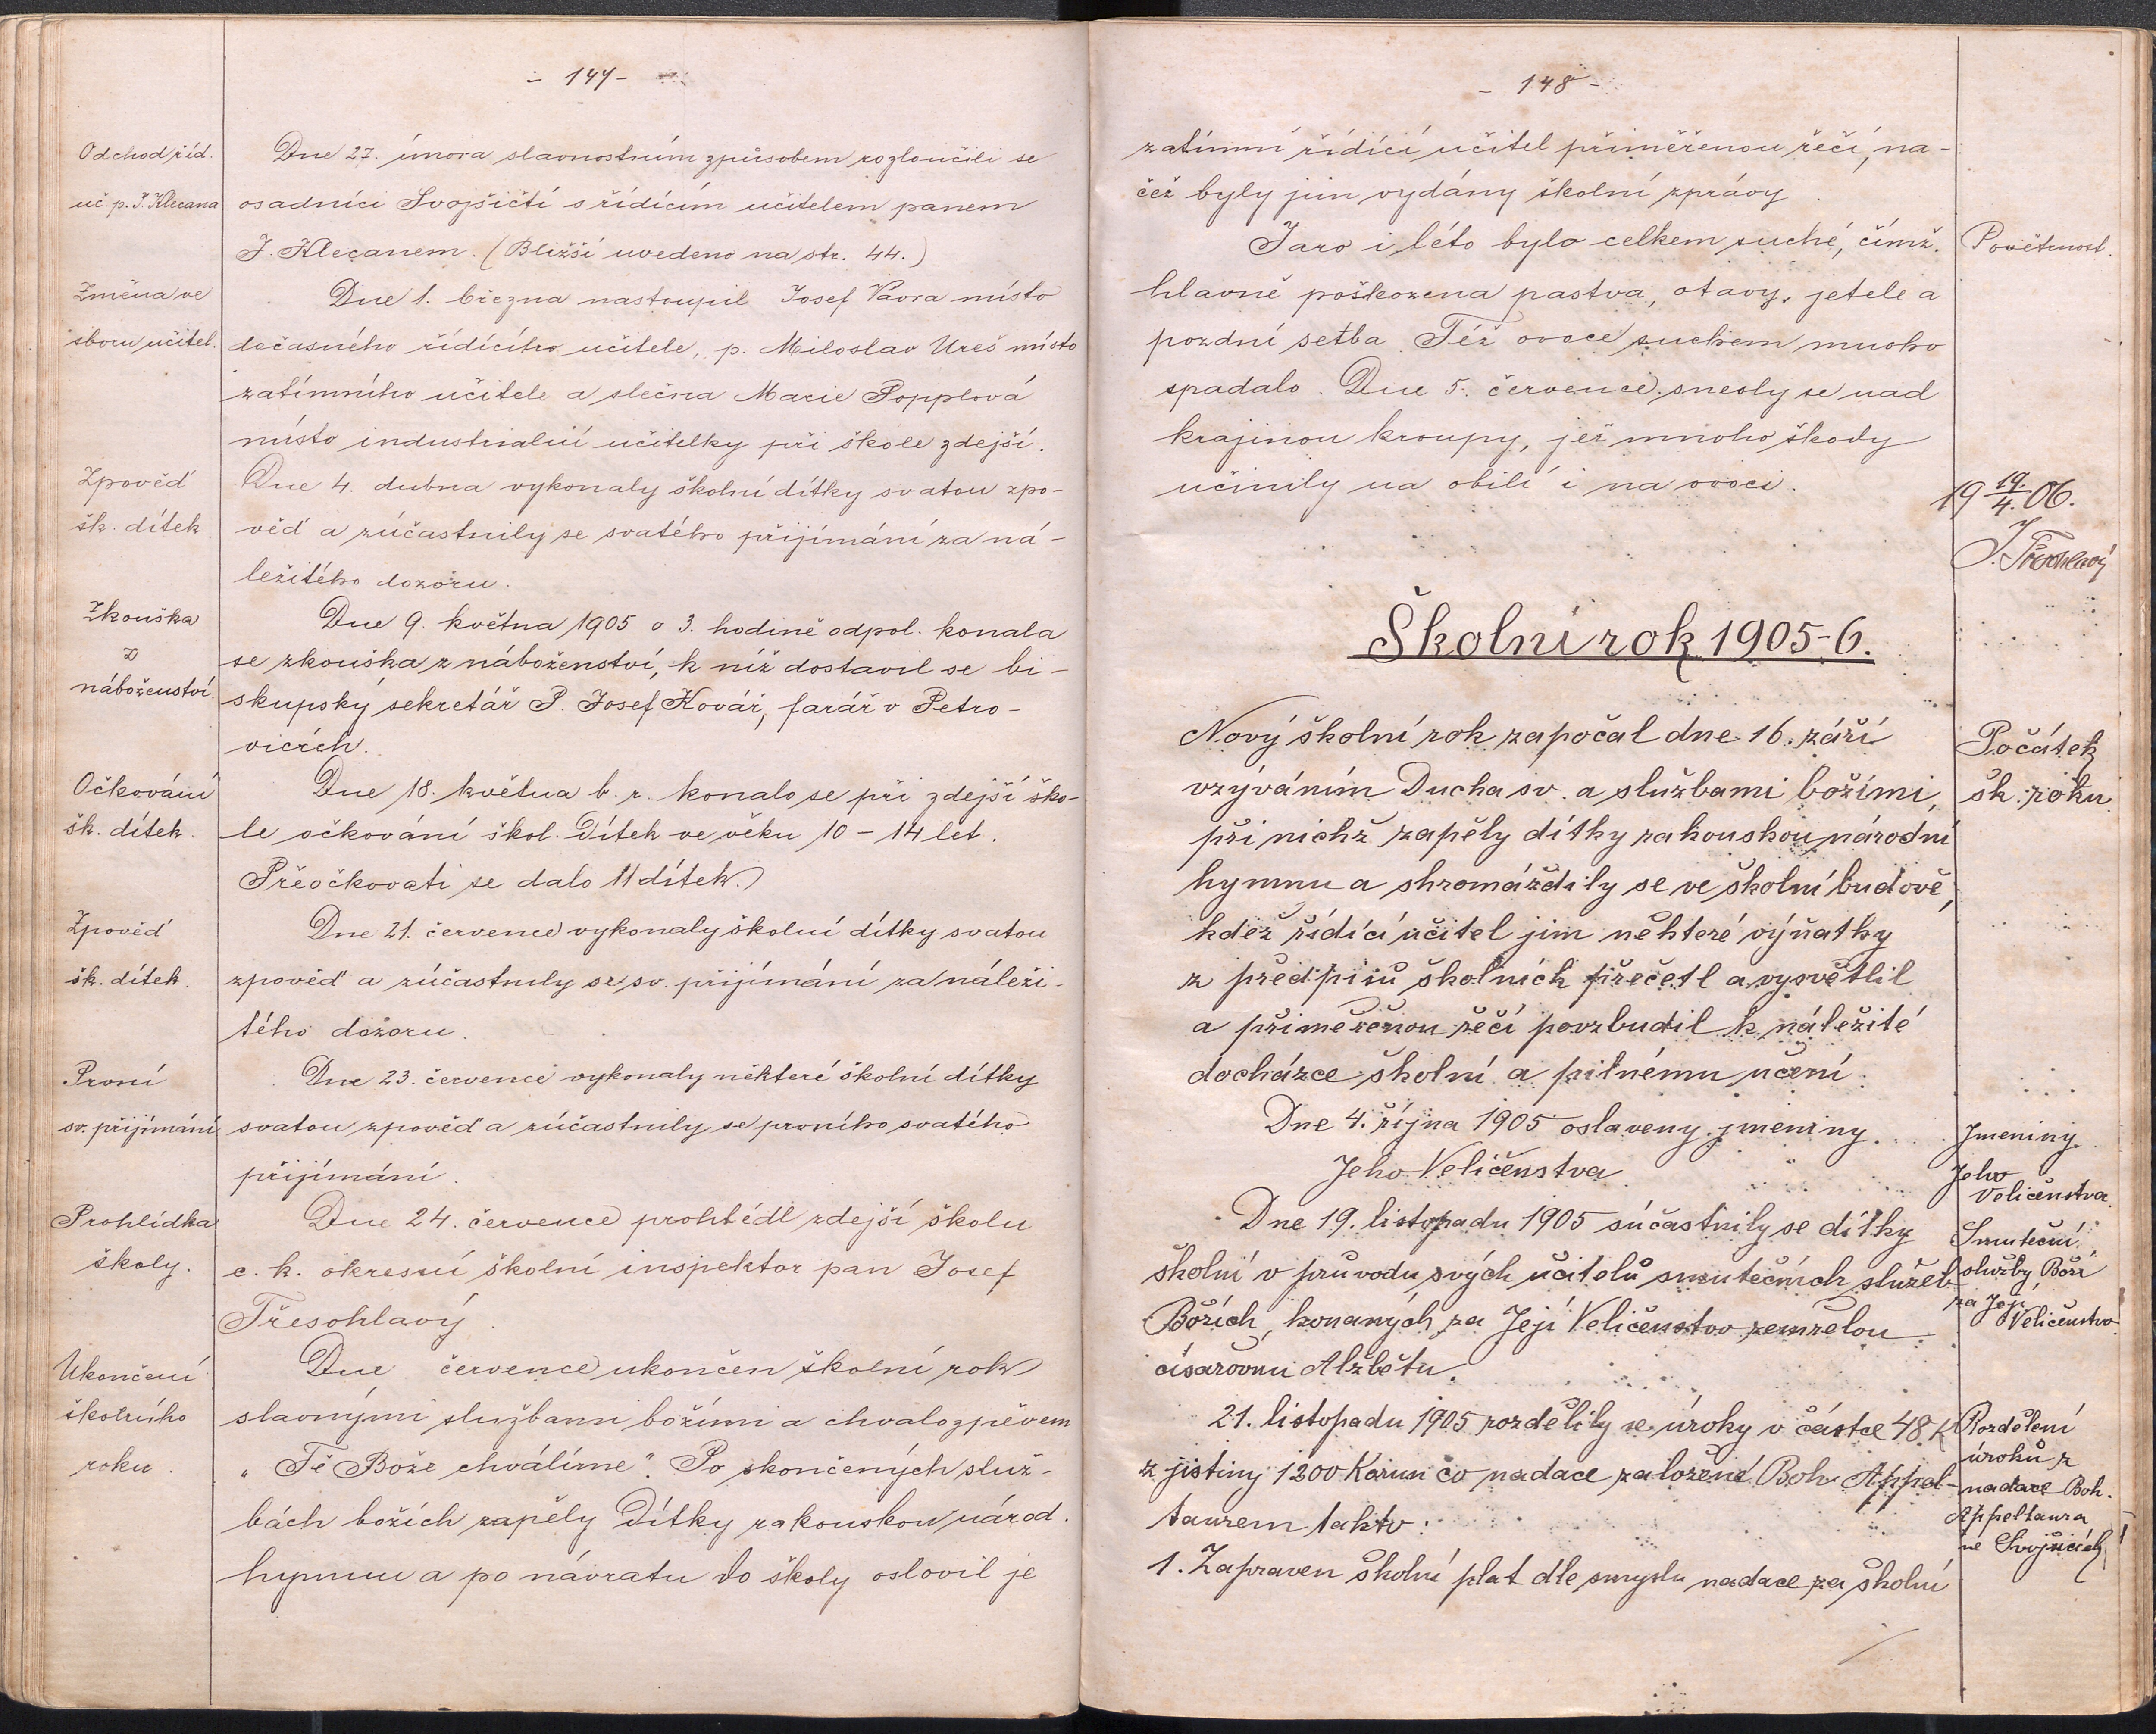 - 147 -
Odchod říd.
uč. p. J. Klecana
Dne 27. února slavnostním způsobem rozloučili se
osadníci Svojšičtí s řídícím učitelem panem
J. Klecanem. (Bližší uvedeno na str. 44.)
Změna ve
sboru učitel.
Dne 1. března nastoupil Josef Vavra místo
dočasného řídícího učitele, p. Miloslav Ureš místo
zatímního učitele a slečna Marie Popplová
místo industrialní učitelky při škole zdejší.
Zpověď
šk. dítek
Dne 4. dubna vykonaly školní dítky svatou zpo-
věď a zúčastnily se svatého přijímání za ná-
ležitého dozoru.
Zkouška
z
náboženství.
Dne 9. května 1905 o 3. hodině odpol. konala
se zkouška z náboženství, k níž dostavil se bi-
skupský sekretář P. Josef Kovář, farář v Petro-
vicích.
Očkování
šk. dítek.
Dne 18. května b. r. konalo se při zdejší ško-
le očkování škol. Dítek ve věku 10 - 14 let.
Přeočkovati se dalo 11 dítek.
Zpověď
šk. dítek.
Dne 21. července vykonaly školní dítky svatou
zpověď a zúčastnily se sv. přijímání za náleži-
tého dozoru.
První
sv. přijímání
Dne 23. července vykonaly některé školní dítky
svatou zpověď a zúčastnily se prvního svatého
přijímání.
Prohlídka
školy.
Dne 24. července prohlédl zdejší školu
c. k. okresní školní inspektor pan Josef
Třesohlavý.
Ukončení
školního
roku.
Dne července ukončen školní rok
slavnými službami božími a chvalozpěvem
„Tě Bože chválíme". Po skončených služ-
bách božích zapěly Dítky rakouskou národ.
hymnu a po návratu do školy oslovil je
- 148 -
zatímní řídící učitel přiměřenou řečí, na-
čež byly jim vydány školní zprávy.
Povětrnost.
Jaro i léto bylo celkem suché, čímž
hlavně poškozena pastva, otavy, jetele a
pozdní setba. Též ovoce suchem mnoho
spadalo. Dne 5. července snesly se nad
krajinou kroupy, jež mnoho škody
učinily na obilí i na ovoci.
19 19./4. 06.
J. Třesohlavý
Školní rok 1905-6.
Počátek
šk. roku.
Nový školní rok započal dne 16. září
vzýváním Ducha sv. a službami božími,
při nichž zapěly dítky rakouskou národní
hymnu a shromáždily se ve školní budově,
kdež řídící učitel jim některé výňatky
z předpisů školních přečetl a vysvětlil
a přiměřenou řečí povzbudil k náležité
docházce školní a pilnému učení.
Jmeniny
Jeho
Veličenstva.
Dne 4. října 1905 oslaveny jmeniny
Jeho Veličenstva
Smuteční
služby Boží
za Její
Veličenstvo.
Dne 19. listopadu 1905 súčastnily se dítky
školní v průvodu svých učitelů smutečních služeb
Božích, konaných za Její Veličenstvo zemřelou
císařovnu Alžbětu.
Rozdělení
úroků z
nadace Boh.
Appeltaura
ve Svojšicích
21. listopadu 1905 rozdělily se úroky v částce 48 K
z jistiny 1200 Korun co nadace založené Boh. Appel-
taurem takto:
1. Zapraven školní plat dle smyslu nadace za školní